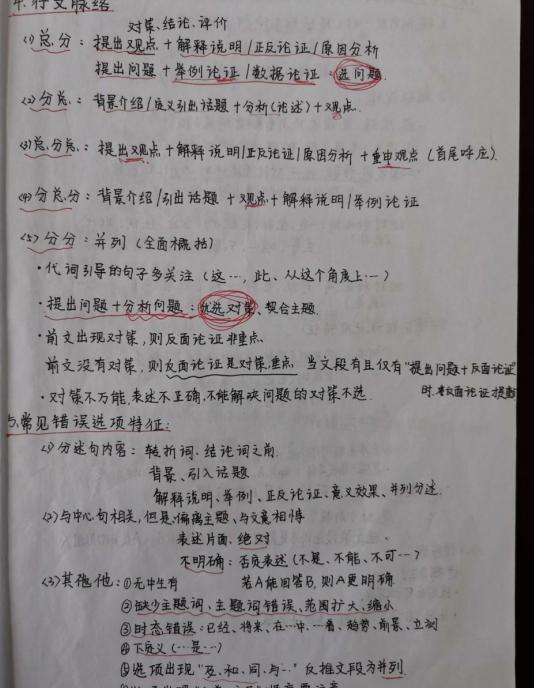 4.行文脉络
对策、结论、评价
(1)总.分：提出观点＋解释说明/正反论证/原因分析
提出问题＋举例论证/数据论证：选问题.
(2)分总：背景介绍/定义引出话题＋分析(论述)＋观点.
(3)总.分总：提出观点＋解释说明/正反论证/原因分析＋重申观点(首尾呼应).
(4)分总分：背景介绍/引出话题＋观点＋解释说明/举例论证
(5)分分：并列(全面概括)
·代词引导的句子多关注(这…,此、从这个角度上…)
·提出问题＋分析问题：优选对策、契合主题.
·前文出现对策,则反面论证非重点.
前文没有对策,则反面论证是对策,重点 当文段有且仅有"提出问题＋反面论证"
·对策不万能,表述不正确,不能解决问题的对策不选. 时,
5.常见错误选项特征:
(1)分述句内容：转折词.结论词之前
背景、引入话题
解释说明、举例、正反论证、意义效果、并列分述.
(2)与中心句相关,但是:偏离主题、与文意相悖
表述片面.绝对
不明确：否负表述(不是、不能、不可…)
若A能回答B,则A更明确
(3)其他他：①无中生有
②缺少主题词、主题词错误、范围扩大、缩小
③时态错误：已经、将来、在…中、…着、趋势、前景、立刻
④下定义(…是…)
⑤选项出现"及、和、同、与…"反推文段为并列.